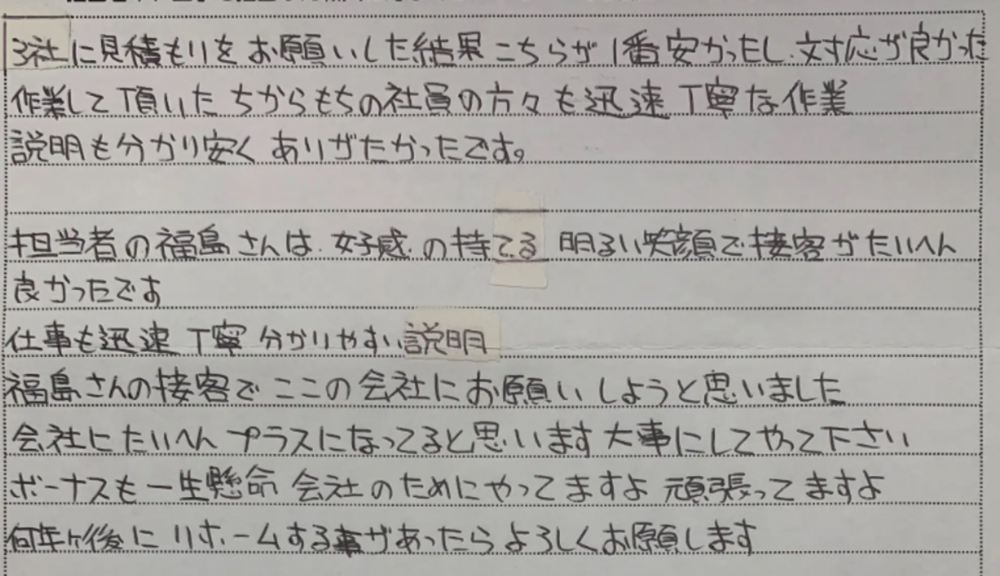 3社に見積もりをお願いした結果こちらが1番安かったし、対応が良かった
作業して頂いたちからもちの社員の方々も迅速丁寧な作業
説明も分かり安くありがたかったです。
担当者の福島さんは、好感の持てる 明るい笑顔で接客がたいへん
良かったです
仕事も迅速 丁寧 分かりやすい説明
福島さんの接客でここの会社にお願いしようと思いました
会社にたいへんプラスになってると思います大事にしてやって下さい
ボーナスも一生懸命会社のためにやってますよ 頑張ってますよ
何年ヶ後にリホームする事があったらよろしくお願します